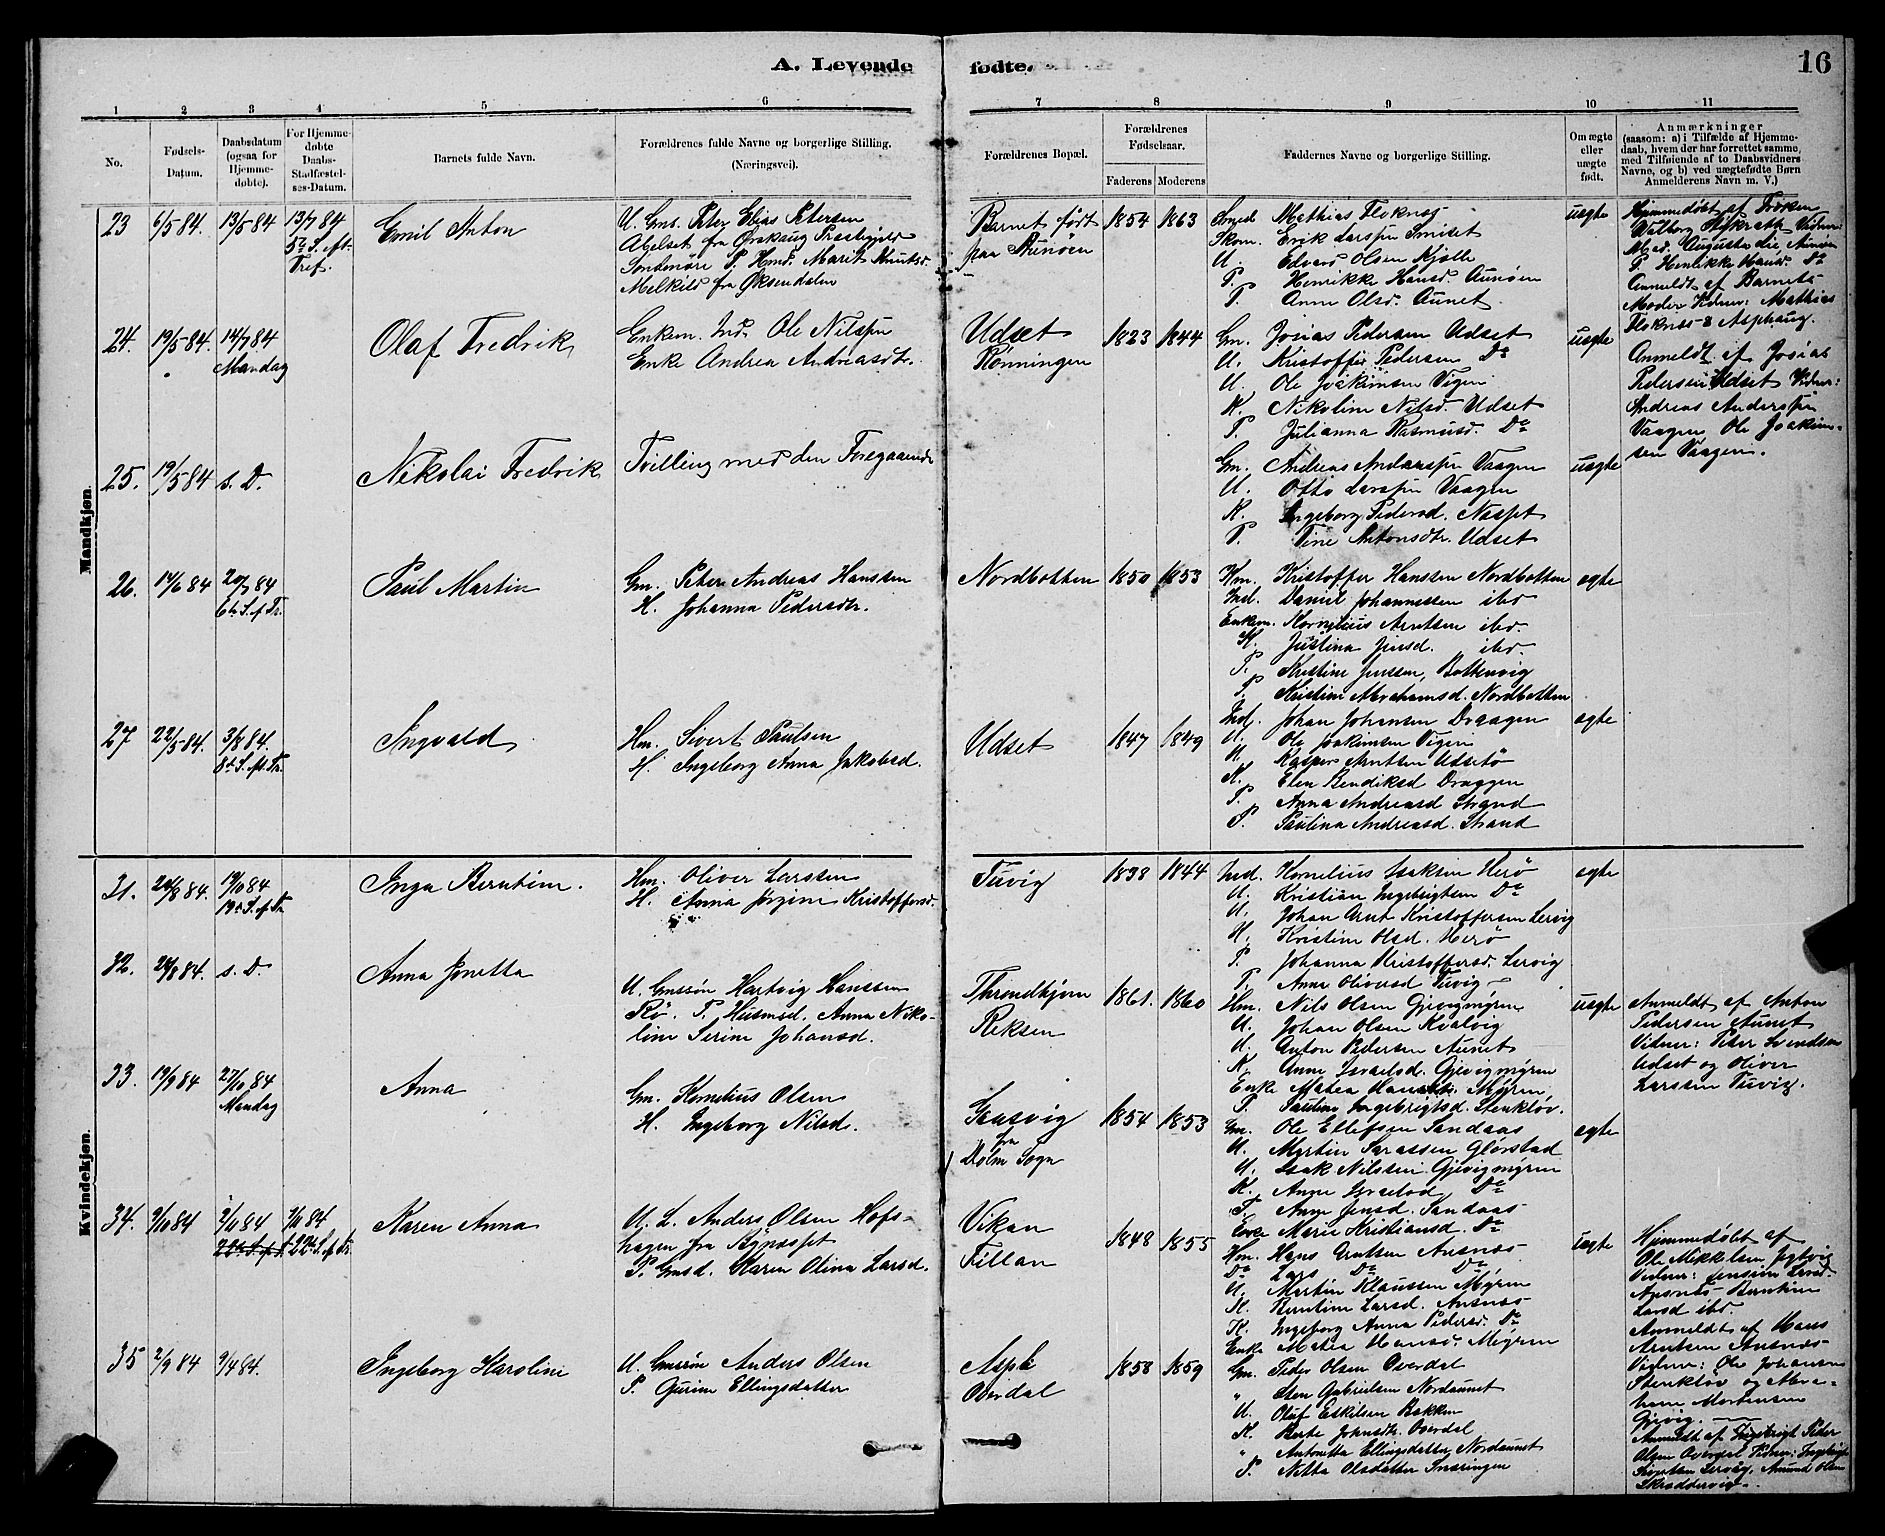 A. Levende fødte.
16
1 2 3 4 5 6 7 8 9 10 11
No.
Fødsels-Datum.
Daabsdatum (ogsaa for Hjemme-døbte).
For Hjemme-døbte Daabs-Stadfæstel-ses-Datum.
Barnets fulde Navn.
Forældrenes fulde Navne og borgerlige Stilling. (Næringsvei).
Forældrenes Bopæl.
Forældrenes Fødselsaar.
Faderens Moderens
Faddernes Navne og borgerlige Stilling.
Om ægte eller uægte født.
Anmærkninger (saasom: a) i Tilfælde af Hjemme-daab, hvem der har forrettet samme, med Tilføiende af to Daabsvidners Navne, og b) ved uægtefødte Børn Anmelderens Navn m. V.)
Mandkjøn.
23 6/5 84. 13/5 84 13/7 84
5te S. eft. Tref.
Emil Anton
U. Gms. Peter Elias Petersen
fra Ørskaug Præstegjeld
Søndmøre P. Hmd. Marit Knutsd.
Melkild fra Øksendalen
Barnet født
paa
1854 1863
Smed Mathias Floknes
Skom. Erik Larssen
U. Edvard Olsen Kjølle
P. Henrikke Hansd. Aunøen
P. Anne Olsd. Aunet
uægte
Hjemmedøbt af Frøken
P. Henrikke Hansd. Do
Anmeldt af Barnets
Moder Vidner: Mathias
Floknes & Asphaug.
24. 19/5 84. 14/7 84
Mandag
Olaf Fredrik
Enkem. Ind. Ole Nilssen
Enke Andrea Andreasdtr.
Udset
Rønningen
1823 1844
Gm. Josias Pedersen Udset
U. Kristoffer Pedersen Do
U. Ole Joakimsen Vigen
K. Nikoline Nilsd. Udset
P. Julianna Rasmusd. Do
uægte
Anmeldt af Josias
Pedersen Udset Vidner:
Andreas Anderssen
Vaagen Ole Joakim-
sen Vaagen.
25. 19/5 84 s. D.
Nikolai Fredrik
Tvilling med den Foregaaende
Gm. Andreas Anderssen Vaagen
U. Otto Larssen Vaagen
K. Ingeborg Pedersd.
P. Tine Antonsdtr. Udset
uægte
26. 14/6 84 20/7 84
6te S. ef. Tr.
Paul Martin
Gm. Peter Andreas Hanssen
H. Johanna Pedersdtr.
Nordbotten
1850 1853
Hm. Kristoffer Hanssen Nordbotten
Ind. Daniel Johannessen ibd
Enkem. Kornelius Arntsen ibd.
H. Justina Jensd. ibd.
P. Kristine Jenssen, Bottenvig
P. Kristine Abrahamsd. Nordbotten
ægte
27 22/5 84. 3/8 84.
8de S. eft. Tr.
Ingvald
Hm. Sivert Paulsen
H. Ingeborg Anna Jakobsd.
Udset
1847 1849
Ind. Johan Johansen Draagen
U. Ole Joakimsen Vigen
U. Kasper Arntsen Udsetø
K. Elen Bendiksd Draggen
P. Anna Andreasd Strand
P. Paulina Andreasd. Strand
ægte
Kvindekjøn.
31. 24/8 84. 19/10 84
19de S. ef. Tr.
Inga Berntine.
Hm. Oliver Larssen
H. Anna Jørgine Kristoffersd.
Tuvig
1838 1844
Ind. Kornelius Isaksen Herø
U. Kristian Ingebrigtsen Do
U. Johan Arnt Kristoffersen Lervig
H. Kristine Olsd. Herø
P. Johanna Kristoffersd. Lervig
P. Anne Oliversd Tuvig
ægte
32. 24/8 84. s. D.
Anna Jonetta
U. Gmssøn Hartvig Hanssen
Rø. P. Husmsd. Anna Niko-
line Serine Johansd.
Throndhjem
Reksen
1861. 1860
Hm. Nils Olsen Gjevigmyren
U. Johan Olsen Kvalvig
U. Anton Pedersen Aunet
K. Anne Israelsd. Gjevigmyren
Enke Matea Hansdtr. Myren
P. Pauline Ingebrigtsd. Stenkløv.
uægte
Anmeldt af Anton
Pedersen Aunet
Vidner: Peter Svendsen
Udset og Oliver
Larssen Tuvig.
33. 19/9 84 27/10 84
Mandag
Anna
Gm. Kornelius Olsen
H. Ingeborg Nilsd.
Gaasvig
fra
Dolm Sogn
1854 1853
Gm. Ole Ellefsen Sandaas
U. Martin Larassen Glørstad
U. Isak Nilssen Gjevigmyren
K. Anne Israelsd. Do
P. Anne Jensd. Sandaas
Enke Marie Kristiansd. Do
ægte
34. 9/10 84 /10 84 9/11 84
22de S. ef. Tr. 22de S. ef. Tr.
Karen Anna
U. L. Anders Olsen Hofs-
hagen fra Bynesset
P. Gmsd. Karen Olina Larsd.
Vikan
Fillan
1848 1855
Hm. Hans Arntsen Ansnes
Do Lars Do Do
U. Martin Klaussen Myren
K. Berntine Larsd. Ansnes
K. Ingeborg Anna Pedersd. Do
Enke Matea Hansd. Myren
uægte
Hjemmedøbt af
Ole Mikkelsen
Vidner: Larsd.
Ansnes Berntine
Larsd ibd.
Anmeldt af Hans
Arntsen Ansnes
Vidner: Ole Johansen
Stenkløv og Abra-
ham Mortensen
Gjevig.
35 2/9 84 9/ 84.
Ingeborg Karoline
U. Gmssøn Anders Olsen
P. Gurine Ellingsdatter
Asple
Overdal
1858 1859
Gm. Peder Olsen Overdal
" Sten Gabrielsen Nordaunet
U. Oluf Eskilsen Bakken
K. Berte Johnsdtr. Overdal
" Antonetta Ellingsdatter Nordaunet
P. Netta Olsdatter Snæringen
Anmeldt af Ingebrigt Peter
Olsen Overdal Vidner: Ingebrigt
Amund Olsen